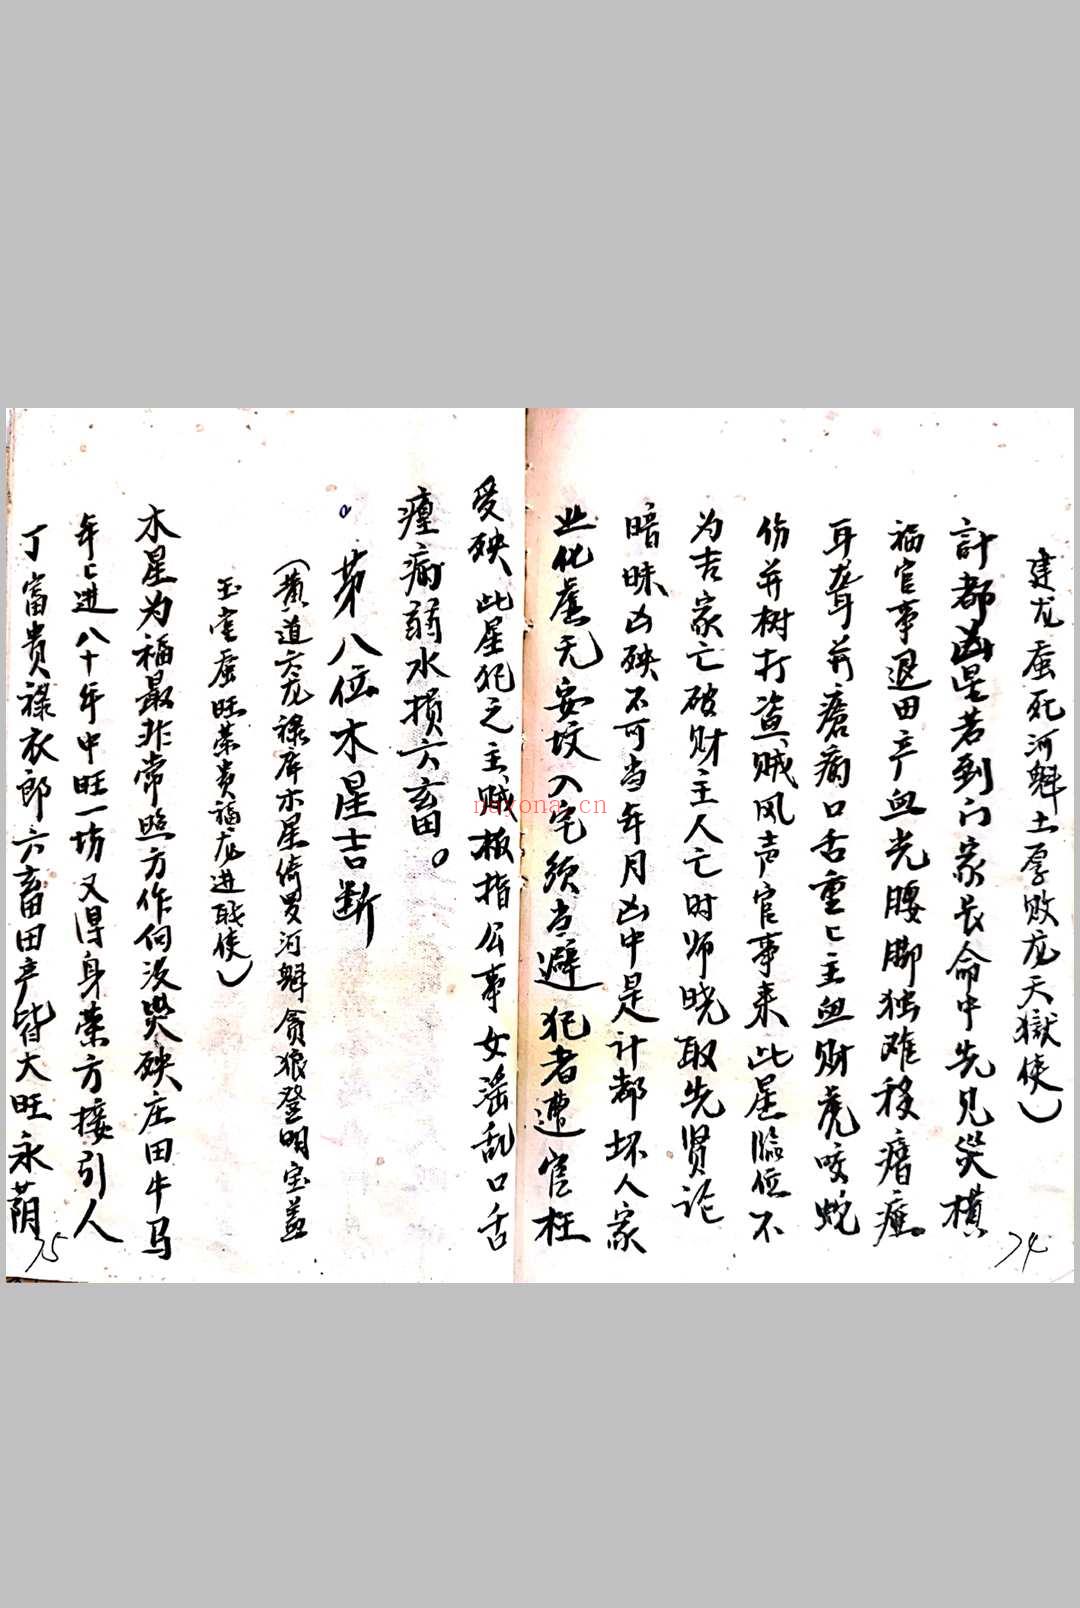 建龙蚕死河魁土厚败龙天獄使)
計都凶星若到门家長命中先见災横
祸官事退田产血光腰脚独难移瘖瘂
耳聋并瘡病口舌重〻主血财虎咬蛇
伤并树打盗贼风声官事来此星臨位不
为吉家亡破财主人亡时师晓取先贤论
暗昧凶殃不可当年月凶中是计都坏人家
业化虚无安坟入宅须当避犯者遭官枉
受殃此星犯之主贼板指公事女淫乱口舌
瘟病弱水损六畜。
第八位木星吉断
(黄道六龙禄库木星倚罗河魁贪狼登明宝盖
玉堂蚕旺荣贵福龙进职使)
木星为福最非常照方作向没災殃庄田牛马
年〻进八十年中旺一坊又得身荣方接引人
丁富贵禄衣郎六畜田产皆大旺永荫
74
75
nayona.cn